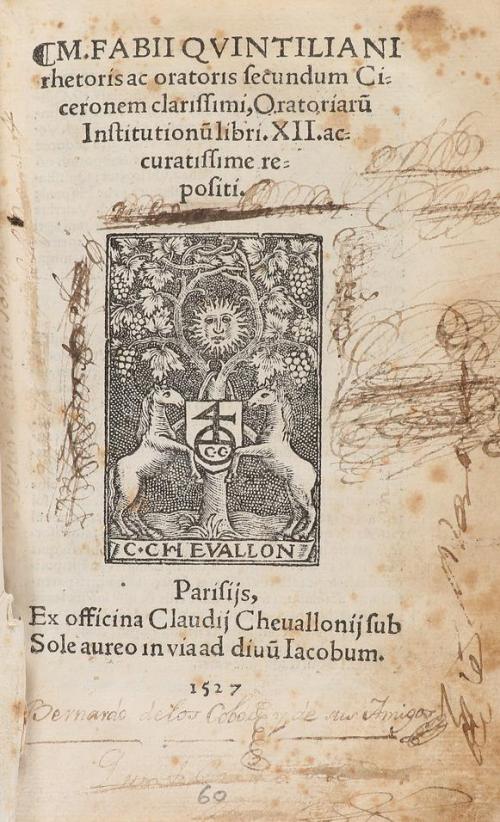 M. FABII QVINTILIANI
rhetoris ac oratoris secundum Ci=
ceronem clarissimi, Oratoriarū
Institutionū libri. XII. ac=
curatissime re=
positi.
4
C·G
C·CHEVALLON
Parisijs,
Ex officina Claudij Cheuallonij sub
Sole aureo in via ad diuū Iacobum.
1527
Bernardo de los Cobos y de sus Amigos
60